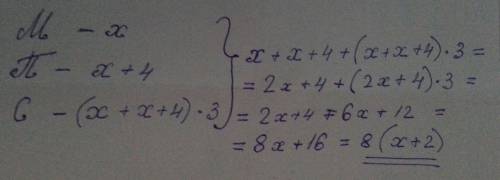 М - x
П - x + 4
С - (x + x + 4) · 3
x + x + 4 + (x + x + 4) · 3 =
= 2x + 4 + (2x + 4) · 3 =
= 2x + 4 + 6x + 12 =
= 8x + 16 = 8(x + 2)